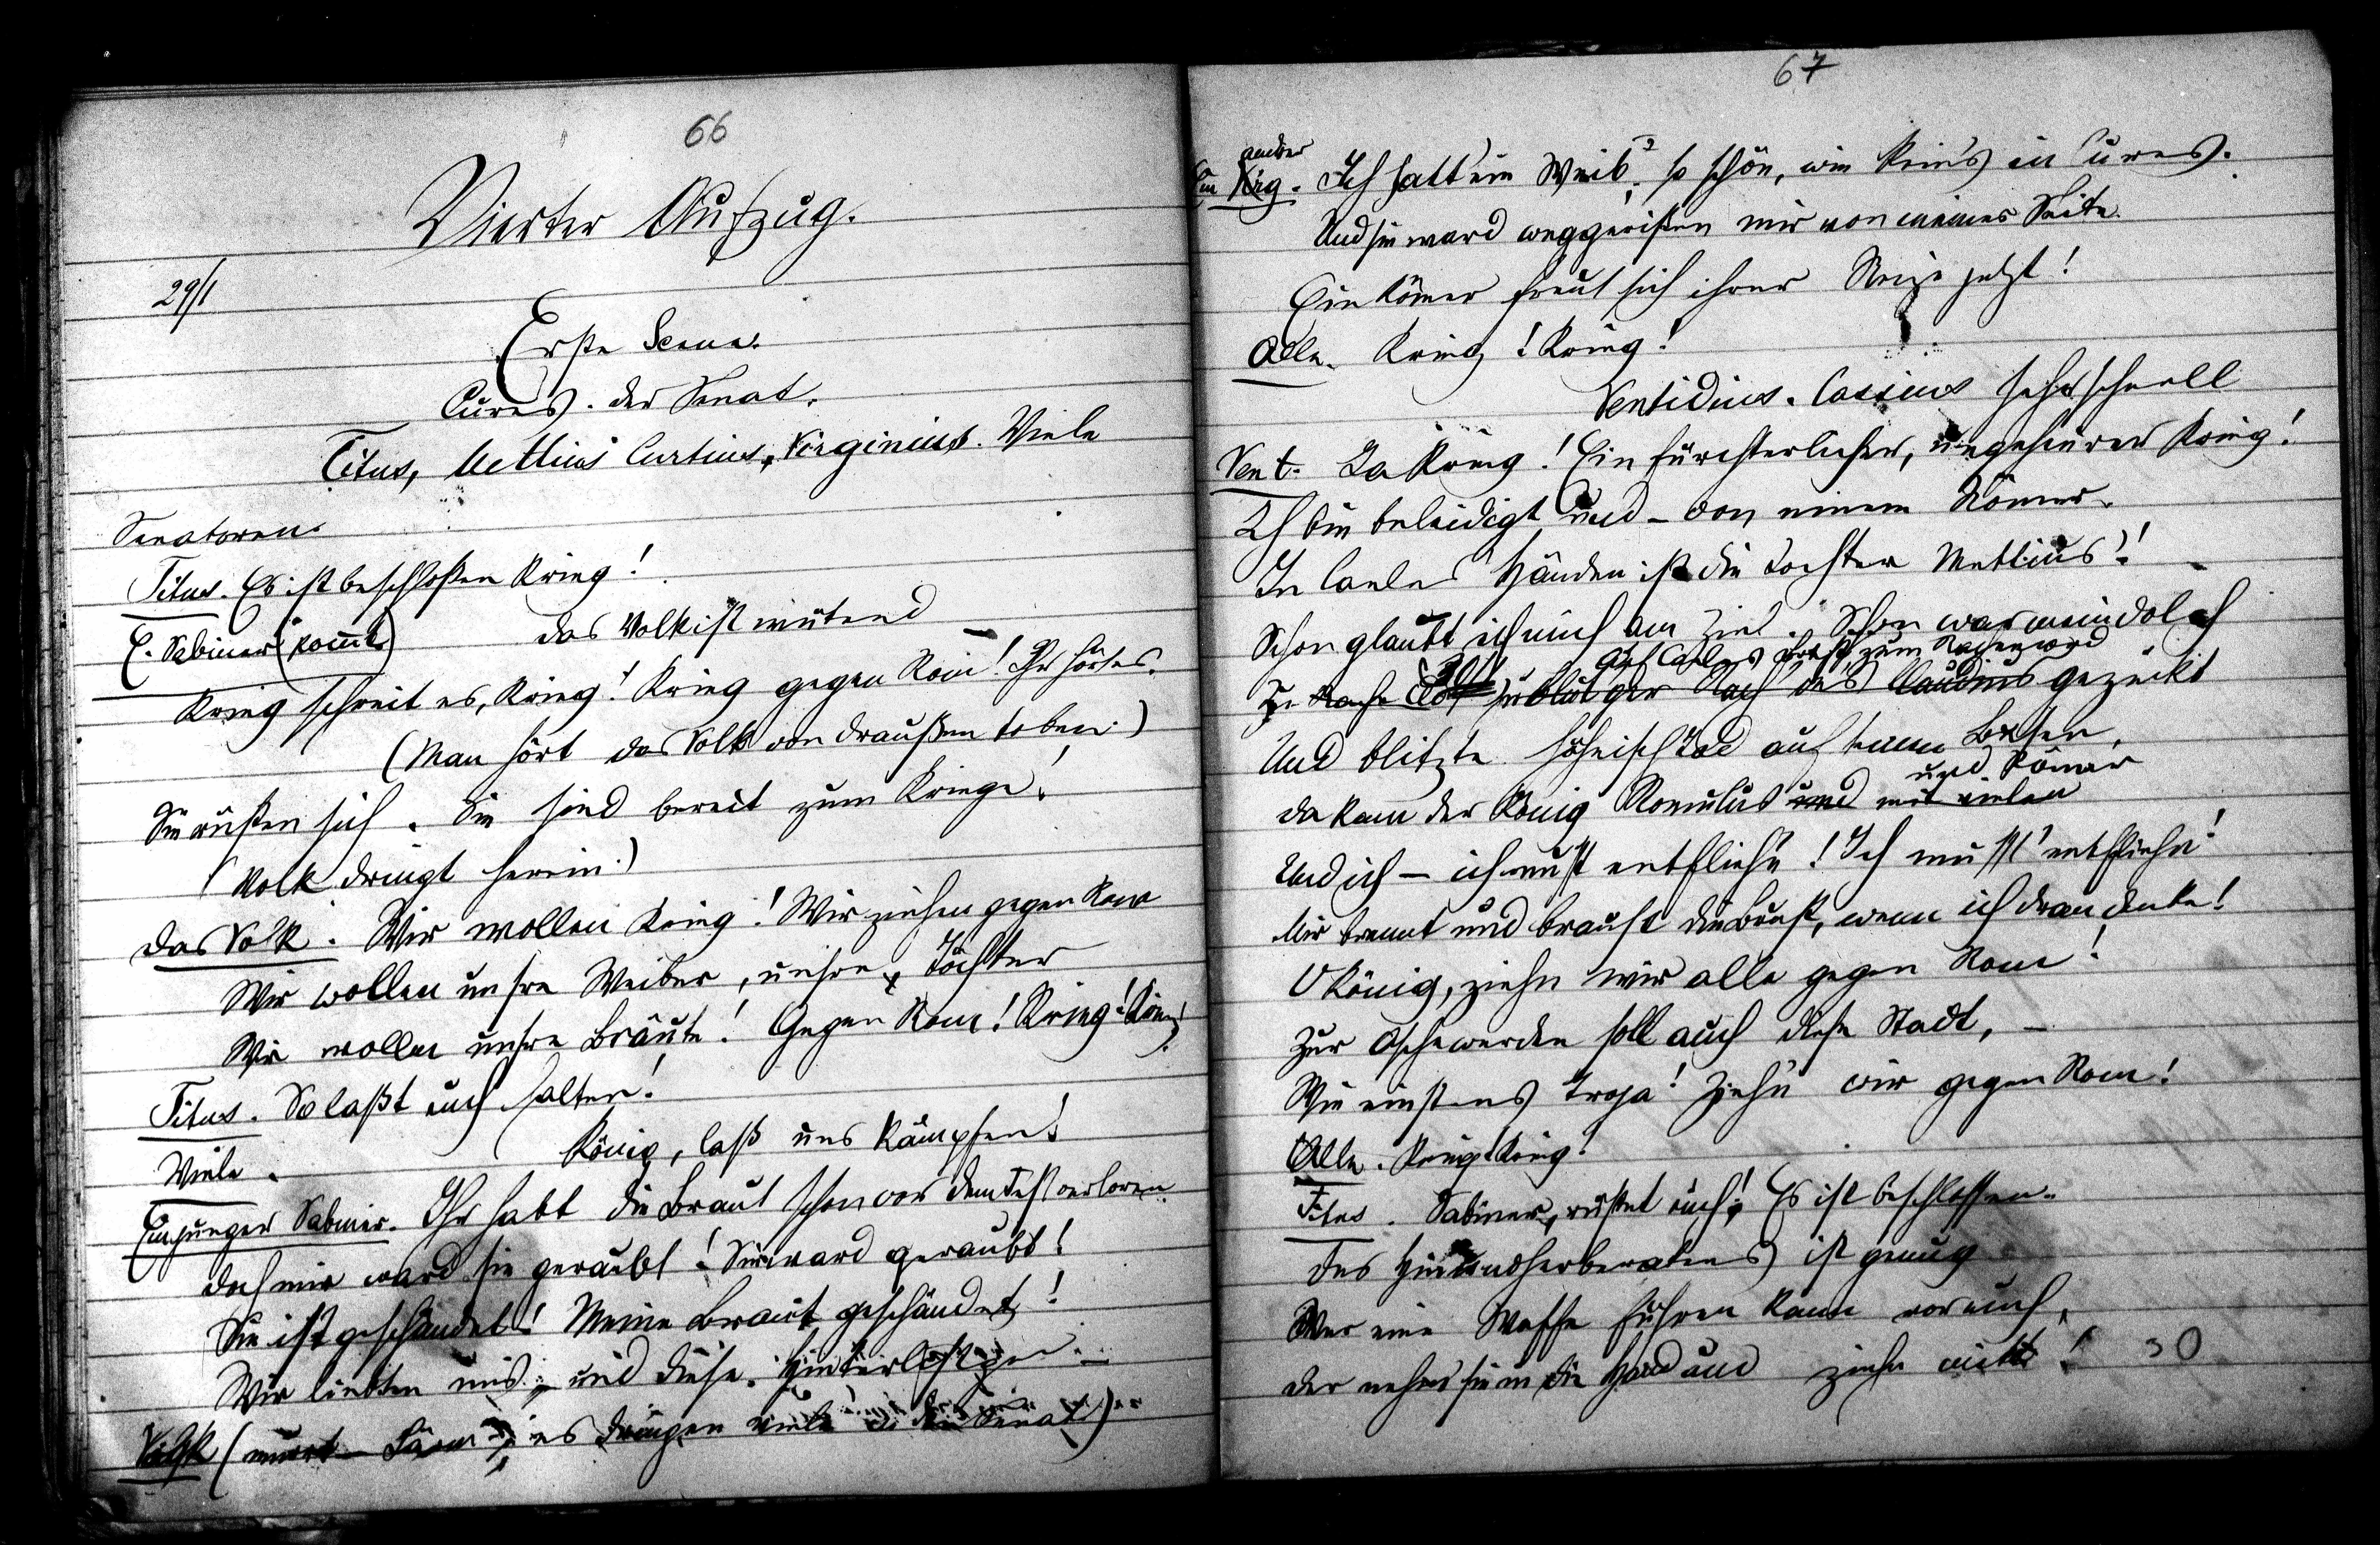 66
Vierter Aufzug.
29/1
Erste Scene.
Cures. Der Senat.
Titus, Mettius Curtius, Virginius. Viele
Senatoren.
Titus. Es ist beschloßen Krieg!
E. Sabiner (kommt) Das Volk ist wütend
Krieg schreit es, Krieg! Krieg gegen Rom! Ihr hört es.
(Man hört das Volk von draußen toben.)
Sie rüsten sich. Sie sind bereit zum Kriege!
(Volk dringt herein.)
Das Volk. Wir wollen Krieg! Wir ziehen gegen Rom
Wir wollen unsre Weiber, unsre Töchter
Wir wollen unsre Bräute! Gegen Rom! Krieg! Krieg!
Titus. So laßt euch halten!
Viele. König, laß uns kämpfen!
Ein junger Sabiner. Ihr habt die Braut schon vor dem Fest verloren.
Doch mir ward sie geraubt! Sie ward geraubt!
Sie ist geschändet! Meine Braut geschändet!
Wir liebten uns; und diese Hinterlistgen –
Volk (murrt – Lärm; es dringen viele in den Senat)
67
Ein andrer
Ich hatt' ein Weib, so schön, wie keins in Cures.
Und sie ward weggerißen mir von meiner Seite.
Ein Römer freut sich ihrer Reize jetzt!
Alle. Krieg! Krieg!
Ventidius. Cassius sehr schnell
Vent. Ja Krieg! Ein fürchterlicher, ungeheurer Krieg!
Ich bin beleidigt und – von einem Römer.
In Caeles Händen ist die Tochter Mettius'!
Schon glaubt ich mich am Ziel. Schon war mein Dolch
auf Caeles Brust zum Rachemord
Zu blut'ger Rach' des Claudius gezückt
Und blitzte höhnisch Tod auf seinen Busen,
und Römer
Da kam der König Romulus und mit vielen
Und ich – ich mußt entfliehn! Ich musst' entfliehn!
Mir brennt und braust die Brust, wenn ich dran denke!
O König, ziehn wir alle gegen Rom!
Zur Asche werden soll auch diese Stadt, –
Wie einstens Troja! Ziehn wir gegen Rom!
Alle. Krieg! Krieg!
Titus. Sabiner, rüstet euch! Es ist beschlossen.
Des Hinundherberatens ist genug
Wer eine Waffe führen kann von euch,
Der nehm sie in die Hand und ziehe mit!
30